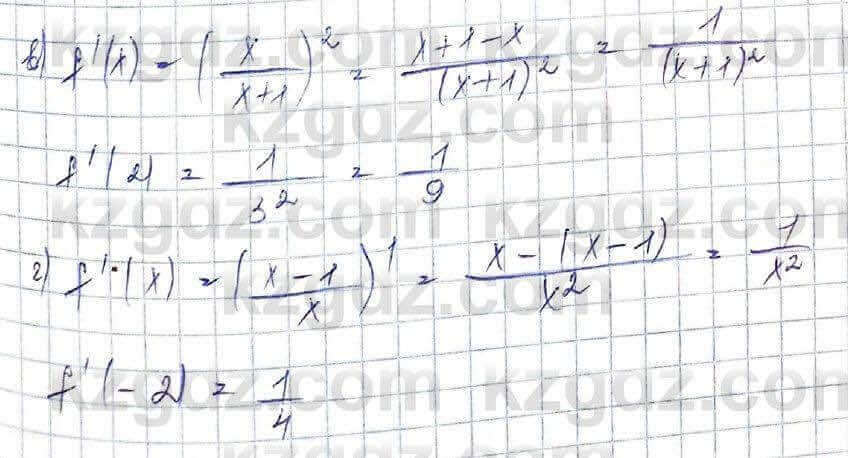 в) f'(x) = (x/(x+1))² = (x+1-x)/(x+1)² = 1/(x+1)²
f'(2) = 1/3² = 1/9
г) f'(x) = ((x-1)/x)' = (x-(x-1))/x² = 1/x²
f'(-2) = 1/4
kzgdz.com kzgdz.com
kzgdz.com
kzgdz.com kzgdz.com
kzgdz.com
kzgdz.com kzgdz.com